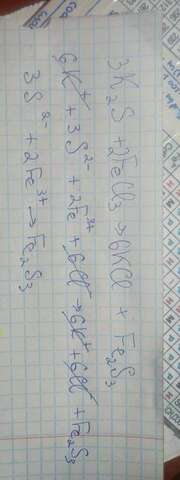 3K₂S + 2FeCl₃ → 6KCl + Fe₂S₃
6K⁺ + 3S²⁻ + 2Fe³⁺ + 6Cl⁻ → 6K⁺ + 6Cl⁻ + Fe₂S₃
3S²⁻ + 2Fe³⁺ → Fe₂S₃